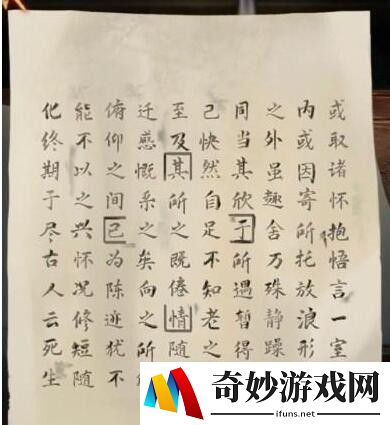 或取诸怀抱悟言一室
内或因寄所托放浪形
之外虽趣舍万殊静躁
同当其欣于所遇暂得
己快然自足不知老之
至及其所之既倦情随
迁感慨系之矣向之所
俯仰之间已为陈迹犹不
能不以之兴怀况修短随
化终期于尽古人云死生
奇妙游戏网
ifuns.net